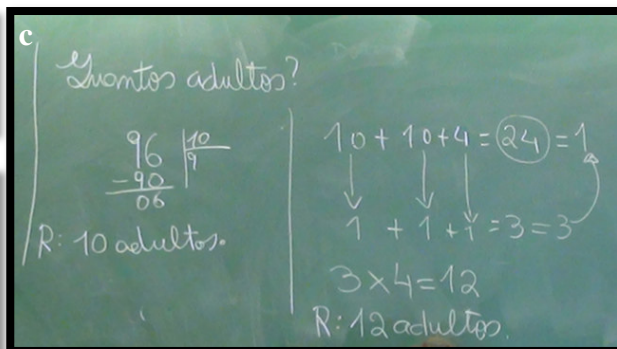 c
Quantos adultos?
96 10
-90 9
06
R: 10 adultos.
10 + 10 + 4 = 24 = 1
1 + 1 + 1 = 3 = 3
3 x 4 = 12
R: 12 adultos.